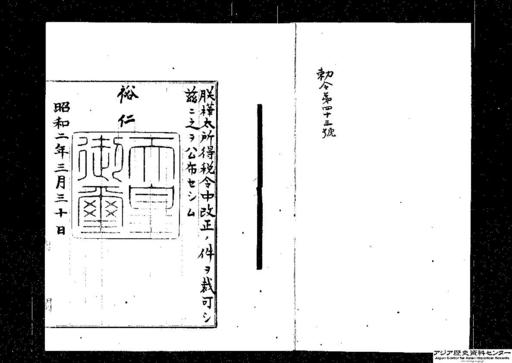 勅令第四十三號
朕樺太所得税令中改正ノ件ヲ裁可シ
茲ニ之ヲ公布セシム
裕仁
天皇御璽
昭和二年三月三十日
アジア歴史資料センター
Japan Center for Asian Historical Records